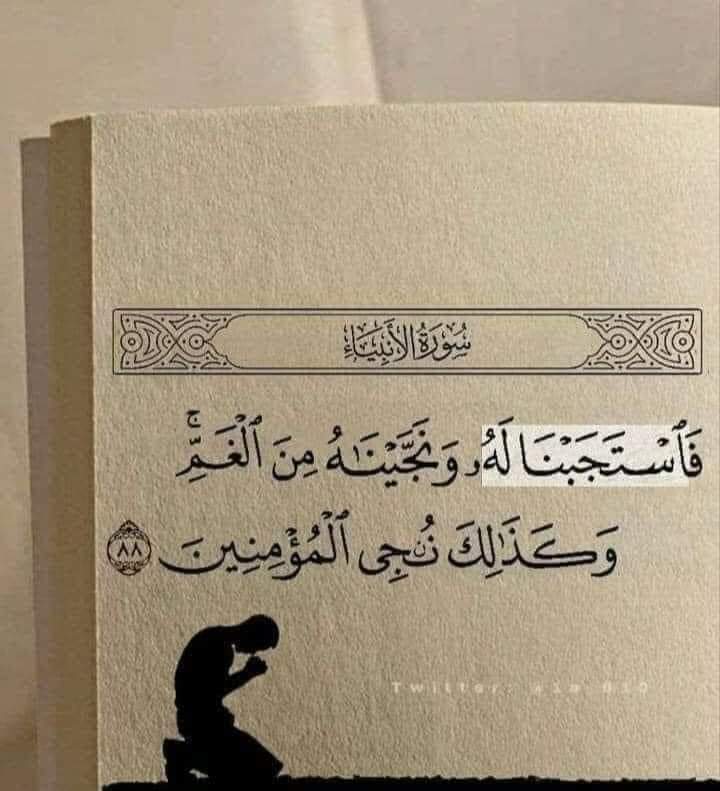 سُورَةُ الأَنبِيَاءِ
فَٱسْتَجَبْنَا لَهُۥ وَنَجَّيْنَٰهُ مِنَ ٱلْغَمِّ ۚ
وَكَذَٰلِكَ نُۨجِى ٱلْمُؤْمِنِينَ ٨٨
Twitter: